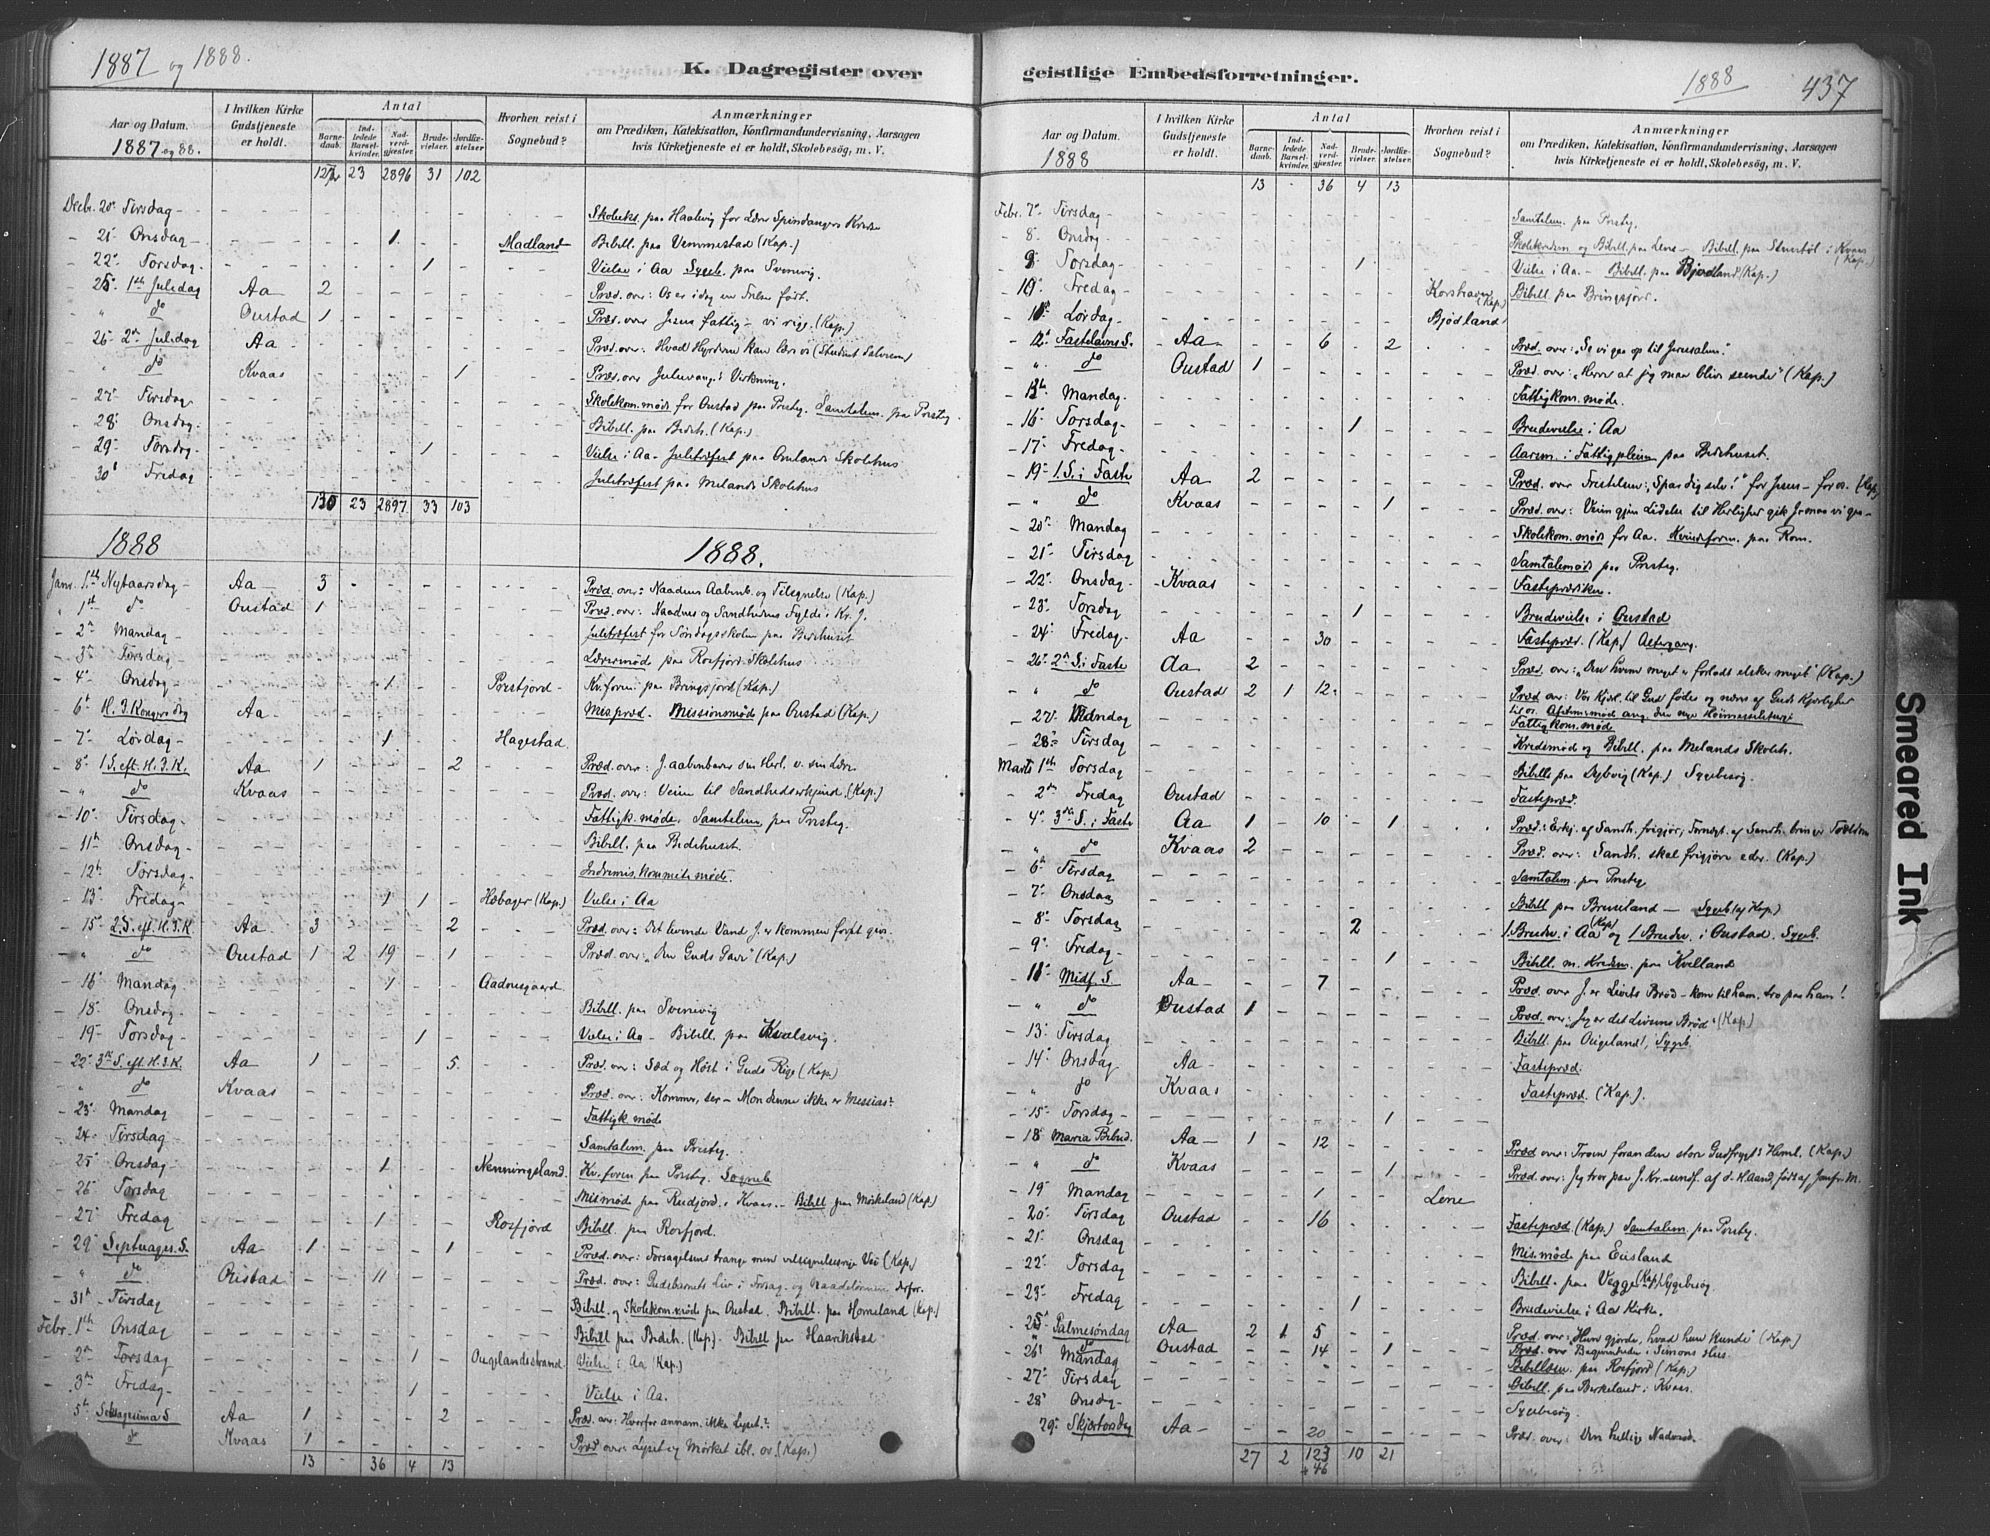 1887 og 1888.
K. Dagregister over
Aar og Datum.
1887 og 88.
I hvilken Kirke Gudstjeneste er holdt.
Antal
Barnedaab.
Indledede Barselkvinder.
Nadverdgjester.
Brudevielser.
Jordfæstelser.
Hvorhen reist i Sognebud?
Anmærkninger
om Prædiken, Katekisation, Konfirmandundervisning, Aarsagen
hvis Kirketjeneste ei er holdt, Skolebesøg, m. V.
127 23 2896 31 102
Decbr. 20' Tirsdag - Skoleeks. paa Haalvig for Lærer Spindangers Kredse
- 21' Onsdag - 1 Madland - Bibell. paa Vemmestad (Kap.)
- 22' Torsdag - 1 Vielse i Aa Sygeb. paa Svenevig.
- 25' 1ste Juledag Aa 2 Præd. over: Os er idag en Frelser født.
" do Oustad 1 Præd. over Jesus fattig - vi rige (Kap.)
- 26' 2den Juledag Aa - Præd. over: Hvad Hyrderne kan lære os (Student Salvesen)
" do Kvaas 1 Præd. over Juleevang's Virkning.
- 27' Tirsdag - Skolekom.møde for Oustad paa Prestg. Samtalem. paa Prestg.
- 28' Onsdag - Bibell. paa Bedeh. (Kap.)
- 29' Torsdag - 1 Vielse i Aa - Juletræfest paa Omlands Skolehus
30' Fredag Juletræfest paa Melands Skolehus
130 23 2897 33 103
1888 1888.
Janr. 1ste Nytaarsdag - Aa - 3 Præd. over: Naadens Aabenb. og Tilegnelse (Kap.)
" 1ste do Oustad 1 Præd. over: Naadens og Sandhedens Fylde i Kr. J.
- 2' Mandag - Juletræfest for Søndagsskolen paa Bedehuset
- 3' Tirsdag - Lærermøde paa Rosfjord Skolehus
- 4' Onsdag - 1 Prestfjord - Kv.foren. paa Bringsjord (Kap.)
- 6' H. 3 Kongers dag Aa - Mispræd. Missionsmøde paa Oustad (Kap.)
- 7' Lørdag - 1 Hagestad.
- 8' 1 S. eft. H. 3. K. Aa 1 2 Præd. over: J. aabenbarer sin Herl. v. sin Lære
- " do Kvaas Præd. over: Veien til Sandhedserkjend. (Kap.)
- 10' Tirsdag - Fattigk. møde. Samtalem. paa Prestg.
- 11' Onsdag - Bibell. paa Bedehuset.
- 12' Torsdag - Indremis. kommitemøde.
- 13' Fredag - 1 1 Hæbager (Kap.) Vielse i Aa
- 15' 2. S. eft. H. 3. K. Aa - 3 2 Præd. over: Det levende Vand J. er kommen forat give
- " do Oustad 1 2 19 - 1 Præd. over: "Den Guds Gave" (Kap.)
- 16' Mandag - 1 Aadnesgaard
- 18' Onsdag - Bibell. paa Svenevig
- 19' Torsdag - 1 Vielse i Aa - Bibell. paa Kvalsvig.
- 22' 3die S. eft. H. 3. K. Aa 1 5. Præd. over: Sæd og Høst i Guds Rige (Kap.)
" do Kvaas Præd. over: Kommer, ser - Mon denne ikke er Messias?
- 23' Mandag Fattigk.møde
- 24' Tirsdag Samtalem. paa Prestg.
- 25' Onsdag - 1 Nenningsland. Kv. foren paa Prestg. Sogneb.
- 26' Torsdag Mismøde paa Rudjord i Kvaas. - Bibell paa Mørkeland (Kap.)
- 27' Fredag 1 Rosfjord Bibell. paa Rosfjord.
- 29' Septuages. S. Aa 1 1 Præd. over: Forsagelsens trange men velsignelsesrige Vei (Kap.)
- " do Oustad 11 Præd. over: Gudsbarnets Liv i Forsag. og Naadelønnen derfor.
- 31' Tirsdag Bibell. og Skolekom.møde paa Oustad. Bibell. paa Homeland (Kap.)
Febr. 1ste Onsdag Bibell paa Bedeh. (Kap.) - Bibell paa Haarikstad
- 2' Torsdag 1 Ougelandsstrand. Vielse i Aa (Kap.)
- 3' Fredag - 1 Vielse i Aa.
- 5' Seksagesima S Aa - 1 2 Præd. over: Hvorfor annam. ikke Lyset?
" do Kvaas 1 Præd. over: Lyset og Mørket ibl. os (Kap.)
13 - 36 4 13
1888 437
geistlige Embedsforretninger.
Aar og Datum.
1888
I hvilken Kirke Gudstjeneste er holdt.
Antal
Barnedaab.
Indledede Barselkvinder.
Nadverdgjester.
Brudevielser.
Jordfæstelser.
Hvorhen reist i Sognebud?
Anmærkninger
om Prædiken, Katekisation, Konfirmandundervisning, Aarsagen
hvis Kirketjeneste ei er holdt, Skolebesøg, m. V.
13 - 36 4 13
Febr. 7' Tirsdag - Samtalem. paa Prestg.
- 8' Onsdag - Skoleeksam og Bibell. paa Lene - Bibell. paa Stuestøl i Kvaas (Kap.)
- 9' Torsdag - 1 Vielse i Aa - Bibell. paa Bjodland (Kap.)
- 10' Fredag - Korshavn (Kap.) Bibell. paa Bringsjord.
- 11' Lørdag - Bjødland
- 12' Fastelavns S. Aa - 6 2 Præd. over: "Se vi gaa op til Jerusalem".
- " do Oustad 1 Præd. over: "Herre at jeg maa blive seende" (Kap.)
- 13' Mandag - Fattigkom. møde.
- 16' Torsdag - 1 Brudevielse i Aa
- 17' Fredag - Aarsm. i Fattigpleien paa Bedehuset.
- 19' 1. S. i Faste Aa 2 Præd. over Fristelsen: "Spar dig selv!" for Jesus - for os. (Kap.)
- " do Kvaas 1 Præd. over: Veien gjen. Lidelse til Herlighed gik J
- 20' Mandag Skolekom. møde for Aa. Kvindeforen. paa Rom.
- 21' Tirsdag Samtalemøde paa Prestg.
- 22' Onsdag - Kvaas Fasteprædiken.
- 23' Torsdag 1 Brudevielse i Oustad
- 24' Fredag - Aa - 30 Fastepræd. (Kap.) Altergang.
- 26' 2' S. i Faste Aa 2 Præd. over: "Den hvem meget er forladt elsker meget" (Kap.)
- " do Oustad 2 1 12 Præd. over: Vor Kjærl. til Gud fødes og næres af Guds Kjærlighed
til os.
- 27' Mandag Fattigkom.møde
- 28' Tirsdag - Kredsmøde og Bibell. paa Melands Skoleh.
Marts 1ste Torsdag Bibell. paa Dybvig (Kap.) Sygebesøg.
- 2' Fredag Oustad Fastepræd.
- 4' 3die S. i Faste Aa 1 - 10 - 1 Præd.: Erkj. af Sandh. frigjør, Fornegt. af Sandh. bringer Trældom
- " do Kvaas 2 Præd. over: Sandh. skal frigjøre eder. (Kap.)
- 6' Tirsdag Samtalem. paa Prestg
- 7' Onsdag Bibell paa Bruseland - Sygeb. (af Kap.)
- 8' Torsdag 2 1 Brudev. i Aa (Kap.) og 1 Brudev. i Oustad. Sygeb.
- 9' Fredag 1 Bibell. m. Kredsm. paa Kvelland
- 11' Midf. S. Aa - 7 Præd. over J. er Livets Brød - kom til ham, tro paa ham!
- " do Oustad 1 Præd. over: "Jeg er det Livsens Brød" (Kap.)
- 13' Tirsdag Bibell. paa Ougeland, Sygeb.
- 14' Onsdag Aa - Fastepræd.
" do Kvaas Fastepræd. (Kap.).
- 15' Torsdag - 1
- 18' Maria Bebud. Aa - 1 12 Præd. over: Troen foran den store Gudfrygt's Heml. (Kap.)
- " do Kvaas 1 Præd. over: Jeg tror paa J. Kr. - undf. af d. H. Aand, født af Jomfr. M.
- 19' Mandag 1 Lene
- 20' Tirsdag Oustad 16 Fastepræd. (Kap.) Samtalem. paa Prestg.
- 21' Onsdag Mis.møde paa Eidsland
- 22' Torsdag Bibell. paa Vegge (Kap.) Sygebesøg
- 23' Fredag 1 Brudevielse i Aa Kirke.
- 25' Palmesøndag Aa 2 1 5 Præd. over: "Hun gjorde, hvad hun kunde" (Kap.)
" do Oustad 14 1 Præd. over Begivenheden i Simons Hus.
- 26' Mandag Bibellæsn. paa Rosfjord (Kap.)
- 27' Tirsdag Bibell. paa Birkeland i Kvaas.
- 28' Onsdag - Sygebesøg.
29' Skjærtorsdag Aa - 20 Præd. over: Den hellige Nadverd.
27 2 123 10 21
+ 46
Smeared Ink